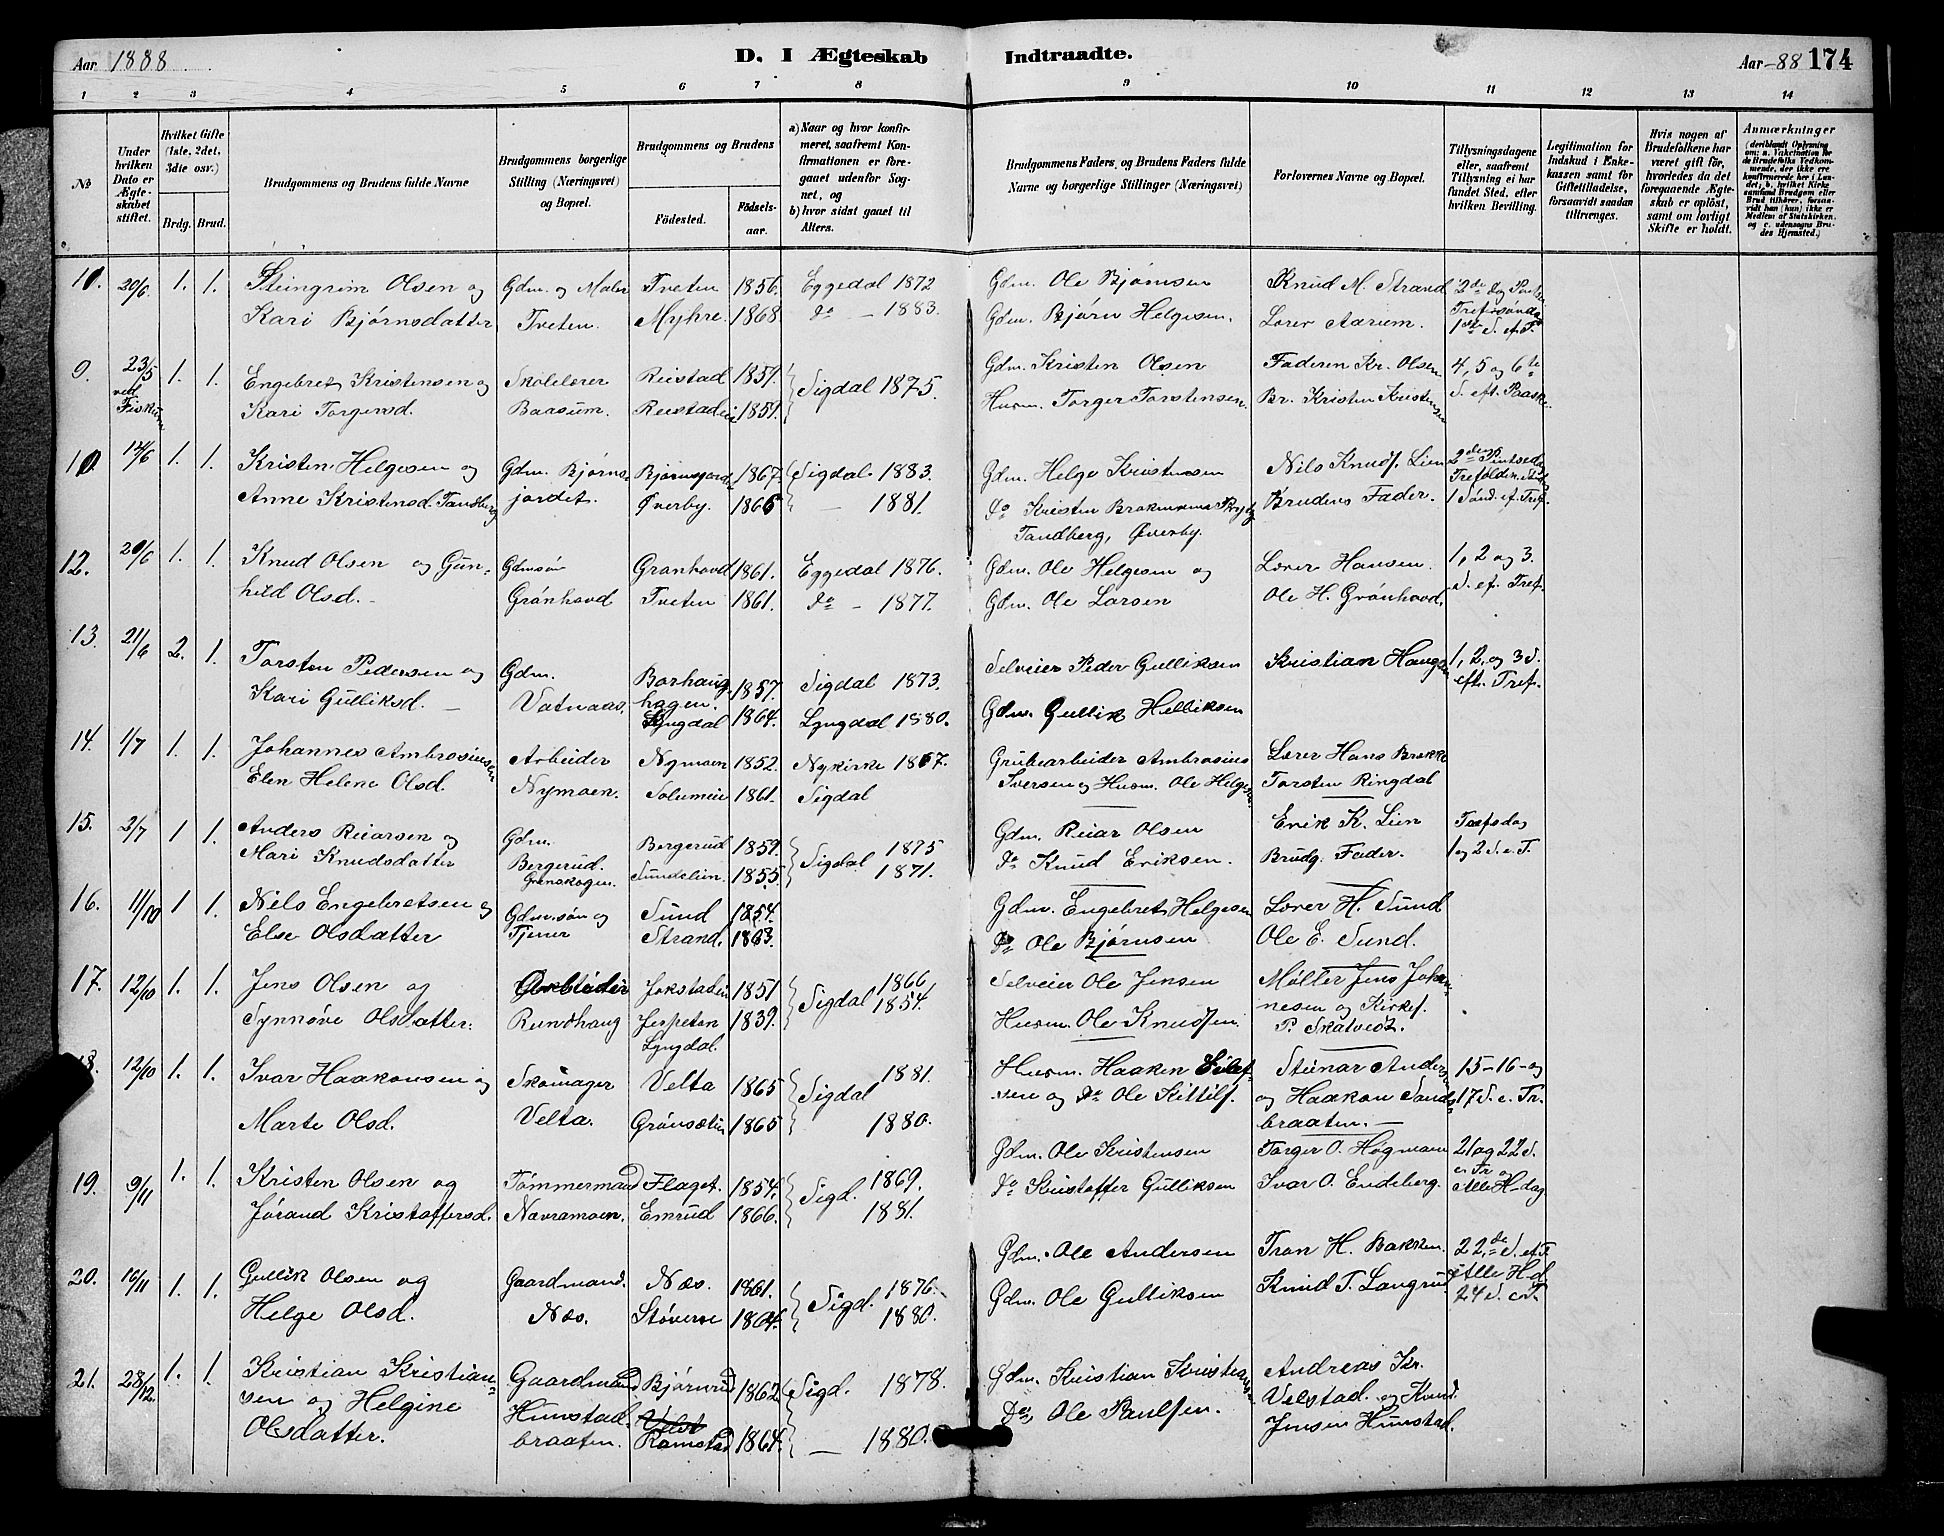 Aar 1888
D. I Ægteskab Indtraadte.
Aar -88 174
1 2 3 4 5 6 7 8 9 10 11 12 13 14
№
Under hvilken Dato er Ægteskabet stiftet.
Hvilket Gifte (1ste, 2det, 3die osv.)
Brdg. Brud.
Brudgommens og Brudens fulde Navne
Brudgommens borgerlige Stilling (Næringsvei) og Bopæl.
Brudgommens og Brudens
Fødested.
Fødsels-aar.
a) Naar og hvor konfirmeret, saafremt Konfirmationen er foregaaet udenfor Sognet, og
b) hvor sidst gaaet til Alters.
Brudgommens Faders og Brudens Faders fulde Navne og borgerlige Stillinger (Næringsvei)
Forlovernes Navne og Bopæl.
Tillysningsdagene eller, saafremt Tillysning ei har fundet Sted, efter hvilken Bevilling.
Legitimation for Indskud i Enkekassen samt for Giftetilladelse, forsaavidt saadan tiltrænges.
Hvis nogen af Brudefolkene har været gift før, hvorledes da det foregaaende Ægteskab er opløst, samt om lovligt Skifte er holdt.
Anmærkninger
20/6 1. 1. Steingrim Olsen og Gdm. og Maler Tveten 1856. Eggedal 1872 Gdm. Ole Bjørnsen Knud M. Strand
Kari Bjørnsdatter Tveten. Myhre. 1868 do - 1883. Gdm. Bjørn Helgesen. Lærer Aarum.
9. 23/5 ved Fiskum 1. 1. Engebret Kristensen og Skolelærer Reistad 1851. Sigdal 1875. Gdm. Kristen Olsen Faderen Kr. Olsen 4, 5 og 6te
Kari Torgersd. Baasum. 1859. Husm. Torger Torstensen. Br. Kristen Kristensen S. eft. Paaske
1. 1. Kristen Helgesen og Gdm. Bjørns- 1867. Sigdal. 1883. Gdm. Helge Kristensen Nils Knuds. Lien
Anne Kristensd. Tandberg jordet. Øverby. 1865 - 1881. do Kristen Brudens Fader. 1 Sønd. ef. Tref.
Tandberg, Øverby.
12. 20/6 1. 1. Knud Olsen og Gun- Gdmsøn Grønhovd 1861. Eggedal 1876. Gdm. Ole Helgesen og Lærer Hansen. 1, 2 og 3.
hild Olsd. - Grønhovd Tveten 1861. do - 1877. Gdm. Ole Larsen Ole H. Grønhovd, S. ef. Tref.
13. 21/6 2. 1. Torsten Pedersen og Gdm. Borhaug- 1857. Sigdal 1873. Selveier Peder Gulliksen Kristian Haugen 1, 2, og 3 S.
Kari Gulliksd. - Vatnaas. hagen. eft. Tref.
Lyngdal 1864. Lyngdal 1880. Gdm. Gullik Helliksen
14. 1/7 1. 1. Johannes Ambrosiussen Arbeider Nymoen 1852. Nykirke 1867. Grubearbeider Ambrosius Lærer Hans Brekke
Elen Helene Olsd. Nymoen. Solumeie 1861. Sigdal Iversen og Husm. Ole Helges. Torsten Ringdal
15. 2/7 1 1. Anders Reiarsen og Gdm. Bergerud 1859. Sigdal 1875 Gdm. Reiar Olsen Erik K. Lien
Mari Knudsdatter Bergerud. Sundelien. 1855. 1871. do Knud Eriksen. Brudg. Fader. 1 og 2 S. e. T.
Grønskogen.
16. 11/10 1 1. Nils Engebretsen og Gdm. søn og Sund 1854. Gdm. Engebret Helgesen Lærer H. Sund
Else Olsdatter Tjener Strand. 1863. do Ole Bjørnsen Ole E. Sund.
17. 12/10 1. 1. Jens Olsen og Arbeider 1851 Sigdal 1866 Selveier Ole Jensen Møller Jens Johan-
Synnøve Olsdatter. Rundhaug 1839. 1854. Husm. Ole Knudsen. nesen og Kirkes.
Lyngdal. P. Skatvedt.
18. 12/10 1. 1. Ivar Haakonsen og Skomager Velta 1865 Sigdal 1881. Husm. Haaken Eilef- Steinar Anders. 15 - 16 - og
Marte Olsd. Velta. 1865 1880. sen og do Ole Kittils. og Haakon Sands- 17 S. e. Tr.
braaten. -
19. 9/11 1. 1. Kristen Olsen og Tømmermand Flaget. 1854. Sigd. 1869. Gdm. Ole Kristensen Torger O. Hogmoen 21 og 22 S.
e. Tr og
Jørand Kristoffersd. Nævramoen. Emrud 1866. 1881. do Kristoffer Gulliksen Ivar O. Endeberg. Alle H-dag
20. 16/11 1. 1. Gullik Olsen og Gaardmand. Næs. 1861. Sigd. 1876. Gdm. Ole Andersen Tron H. Bakken. 22de S. ef. T.
Helge Olsd. Næs. 1864. 1880. Gdm. Ole Gulliksen Knud T. Langrud Alle H.d
24 S. e T.
21. 28/12. 1. 1. Kristian Kristian- Gaardmand Bjørnrud 1862 Sigd. 1878. Gdm. Kristian Kristiansen Andreas Kr.
sen og Helgine Hunstad- Do, Ole Paulsen. Velstad og Knud
Olsdatter. braaten. Ramstad 1864. - 1880. Jensen Hunstad.